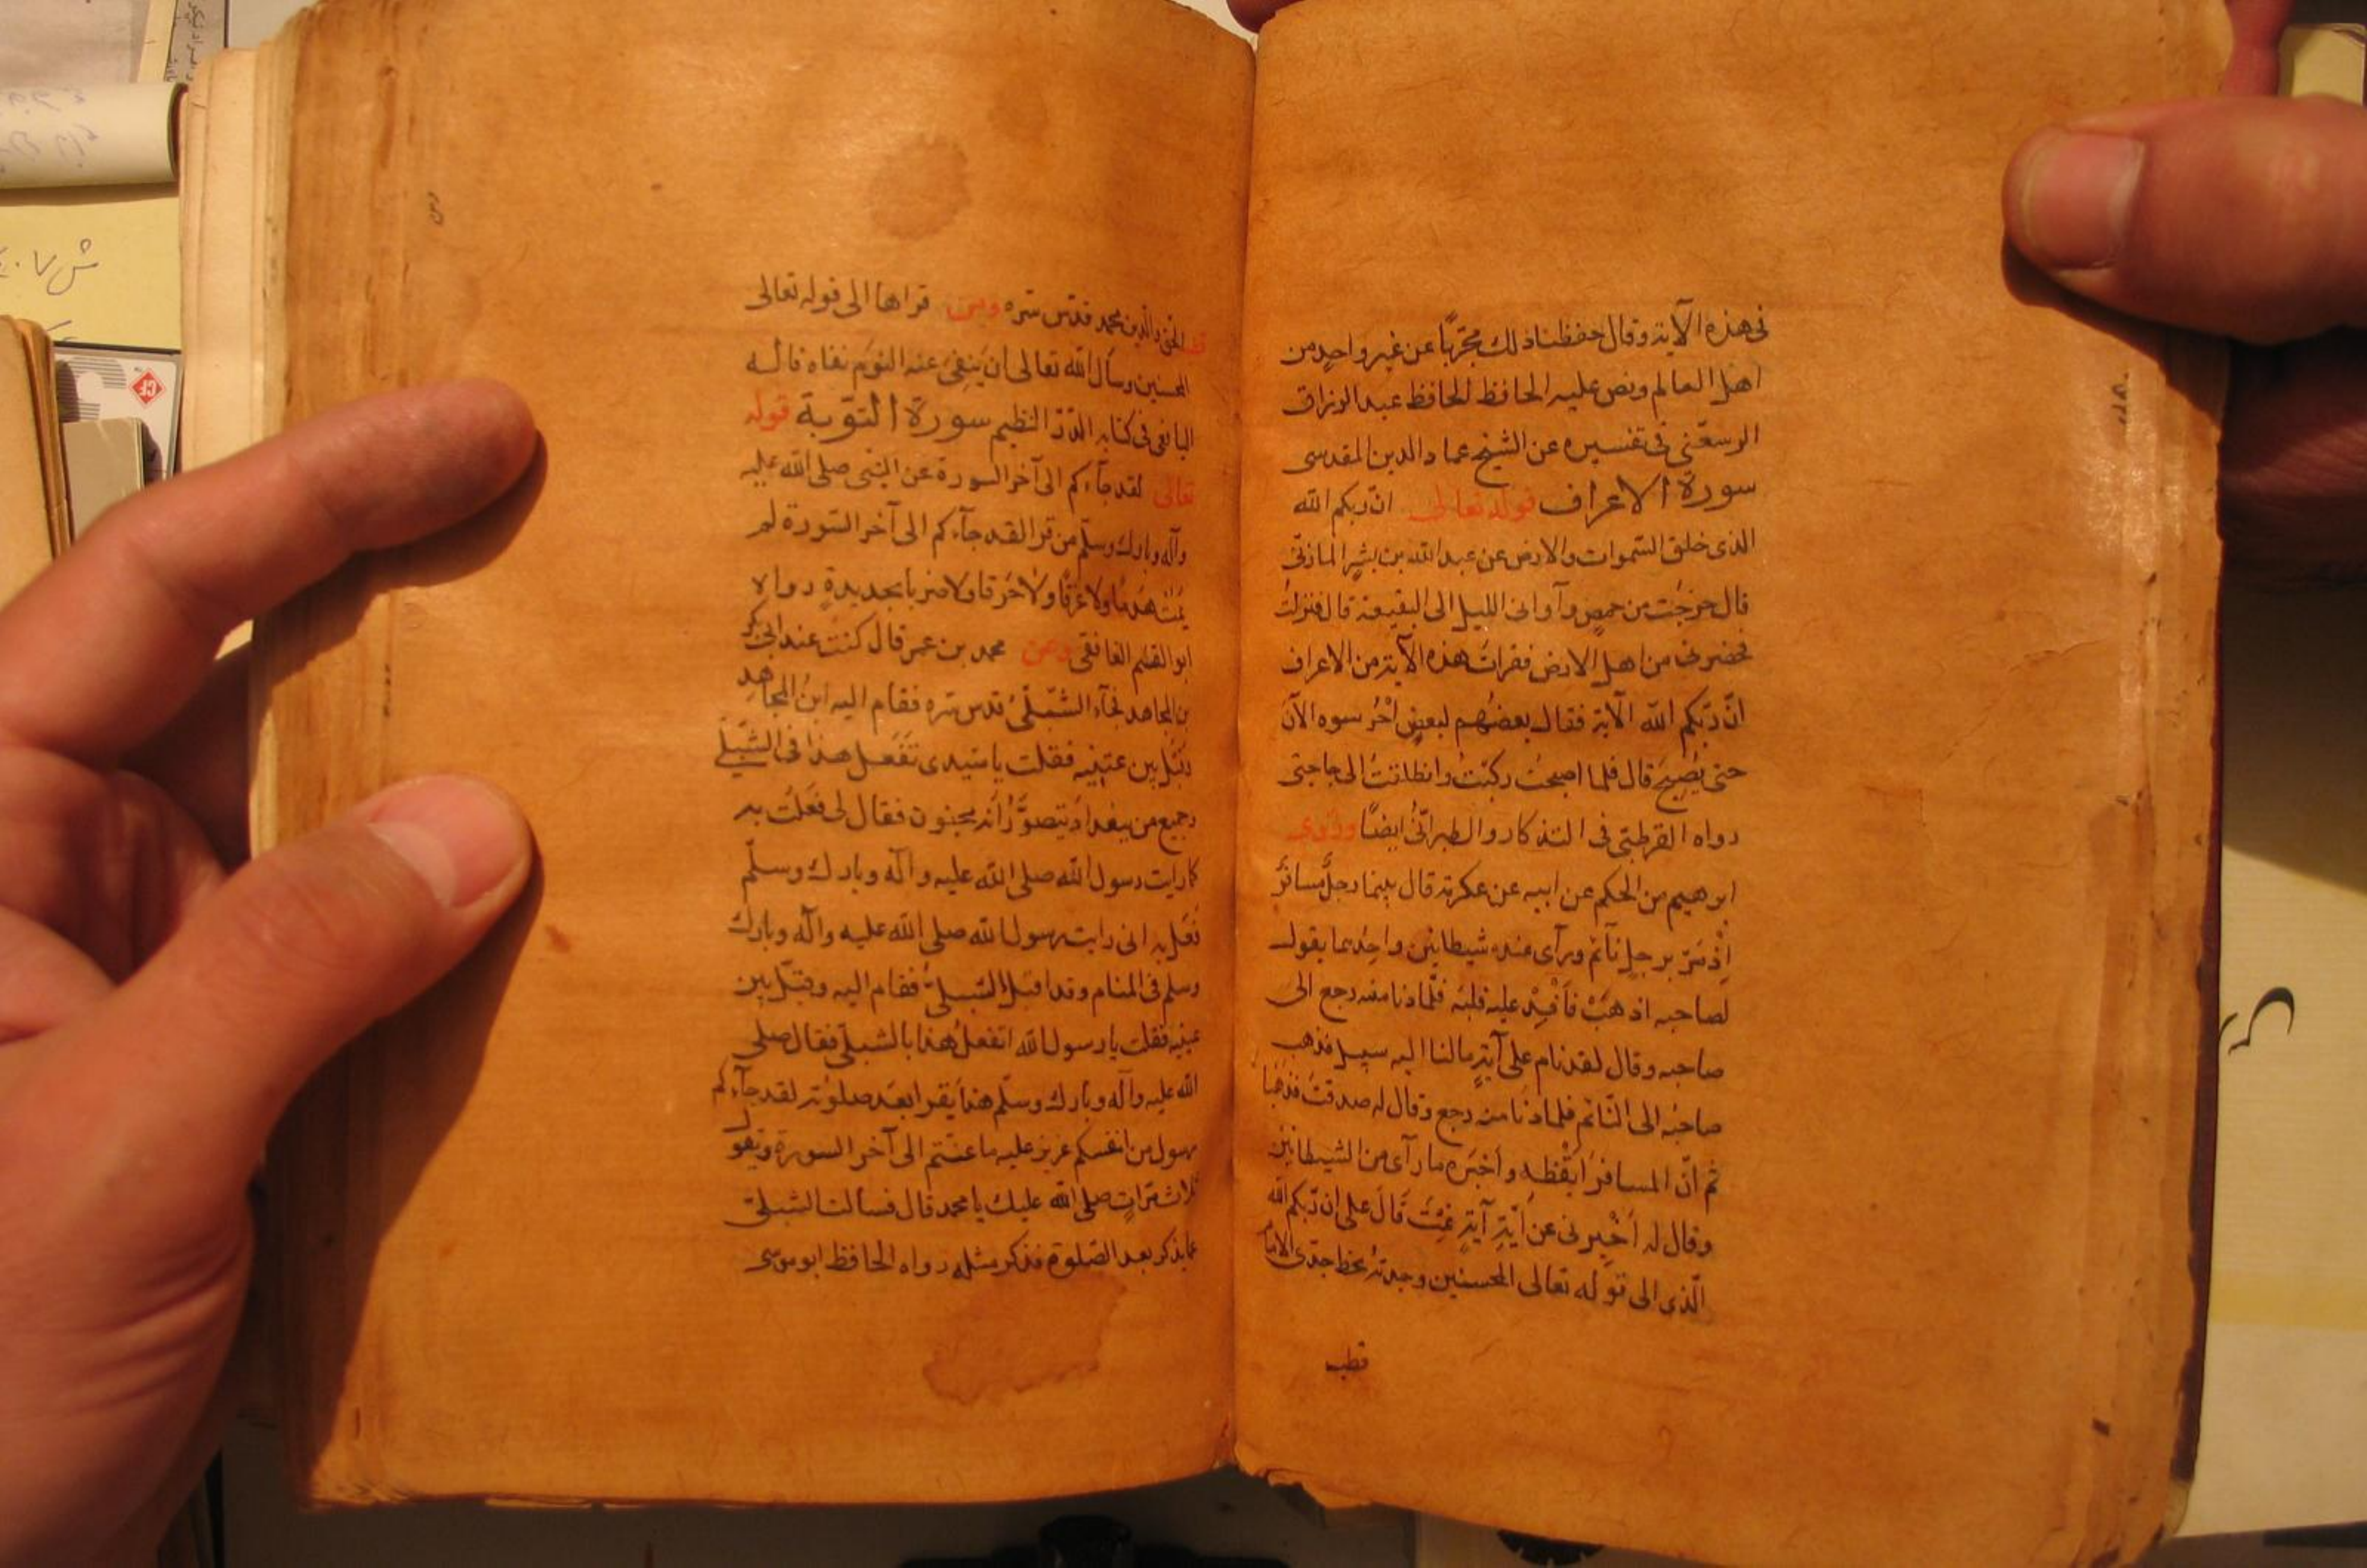 فى هذه الآية وقال حفظنا ذلك مجرّبًا عن غير واحدٍ من
اهل العالم ونص عليه الحافظ الحافظ عبد الرزاق
الرسعنى فى تفسيره عن الشيخ عماد الدين المقدسى
سورة الاعراف قوله تعالى انّ ربكم الله
الذى خلق السّموات والارض عن عبد الله بن بشرٍ المازنىّ
قال خرجْت من حمص وآوانى الليل الى البقيعة قال فنزلتُ
فحضرنى من اهل الارض فقراتُ هذه الآية من الاعراف
انّ ربّكم الله الآية فقال بعضُهم لبعضٍ اُحْرُسوه الآن
حتى يُصْبِحَ قال فلما اصبحتُ ركبْتُ وانطلقتُ الى حاجتى
رواه القرطبىّ فى التذكار والطبرانّىُ ايضًا ورُوى
ابرهيم بن الحكم عن ابيه عن عكرمة قال بينما رجلٌ مسافرٌ
اِذْ مَرّ برجلٍ نآئم ورآى عنده شيطانين واحِدُهما يقول
لصاحبه اذهَبْ فَاَفْسِدْ عليه قلبَه فلّما دنا منه رجع الى
صاحبه وقال لقد نام على آيةٍ مالنا اليه سبيل فذهب
صاحبُه الى النّائم فلما دنا منه رجع وقال له صدقتَ فذهبا
ثم انّ المسافرَ ايْقظه واَخبَره ما رآى من الشيطانين
وقال له اَخْبِرنى عن اَيّةِ آيةٍ نِمْتَ قَالَ على ان ربّكم الله
الّذى الى قوله تعالى المحسنين وجدتهُ بخط جدّى الامام
قطب
قطب الحق والدين محمد قدّس سرّه ومن قراها الى قوله تعالى
المحسنين وسأل الله تعالى ان يَنفِىَ عنه النّوْمَ نفاه قاله
اليافعى فى كتابه الدّرّ النظيم سورة التّوبة قوله
تعالى لقد جآءكم الى آخر السورة عن النبى صلى الله عليه
وآله وبارك وسلّم من قرا لقد جآءكم الى آخر السّورة لم
يَمُتْ هَدْمًا ولا غَرَقًا ولا حَرَقا ولا ضربا بحديدةٍ رواه
ابو القسم الغافقى وعن محمد بن عمر قال كنت عند ابى بكر
بن المجاهد فجآء الشّبلىُّ قدس سره فقام اليه ابنُ المجاهِدِ
وقَبّل بين عينيه فقلت يا سيدى تَفعَل هذا فى الشبلىّ
وجميع من ببغداد يتصوَّرُ انّه مجنون فقال لى فَعَلْتُ به
كما رايت رسول الله صلى الله عليه وآله وبارك وسلّم
فَعَل به انى رايت رسول الله صلى الله عليه وآله وبارك
وسلم فى المنام وقد اقبل الشبلىّ فقام اليه وقبّل بين
عينيه فقلت يا رسول الله اتفعلُ هذا بالشبلىّ فقال صلى
الله عليه وآله وبارك وسلّم هذا يَقرا بعد صلوٰته لقد جآءكم
رسول من انفسكم عزيز عليه ما عنتّم الى آخر السورة ويقول
ثلاث مَرّاتٍ صلى الله عليك يا محمد قال فسالت الشبلىّ
عما يذكر بعد الصّلوة فذكر مثله رواه الحافظ ابو موسى